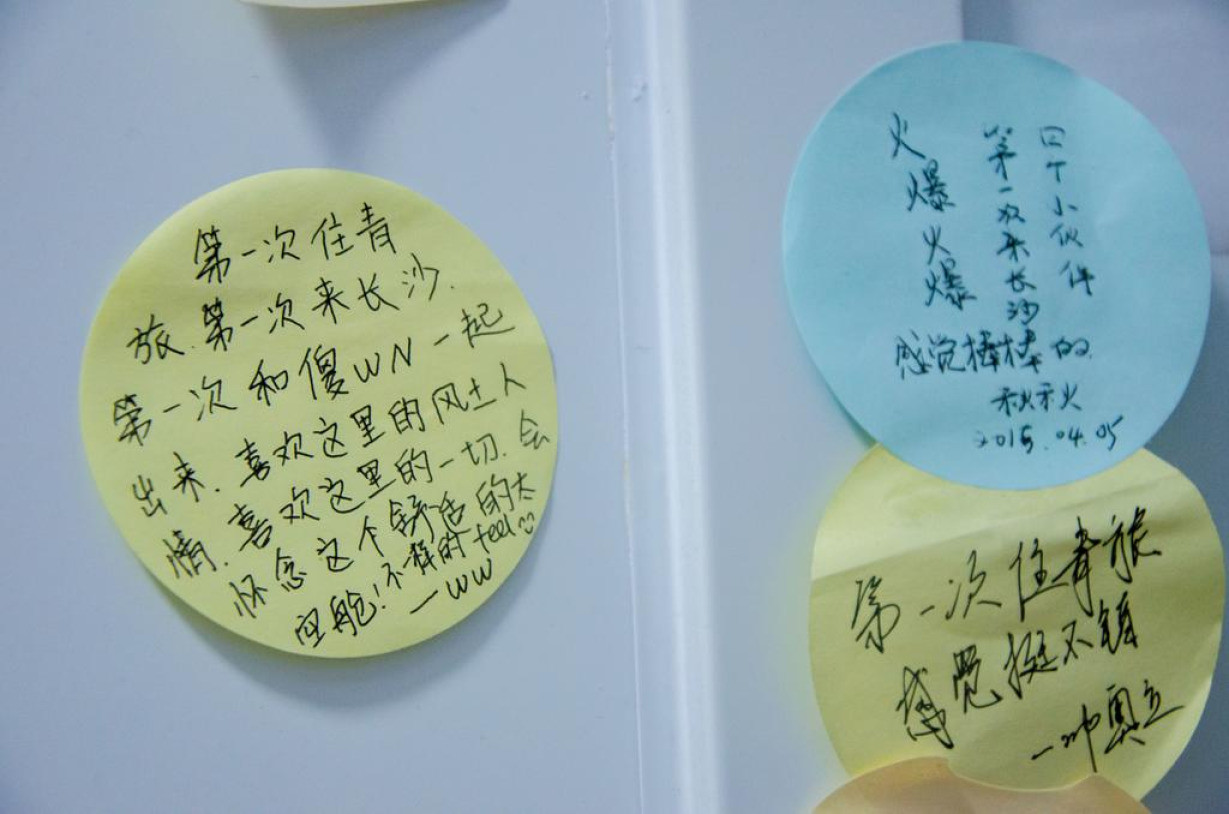 第一次住青
旅.第一次来长沙.
第一次和傻WN一起
出来.喜欢这里的风土人
情.喜欢这里的一切.会
怀念这个舒适的太
空舱!不一样的feel
—WW
四个小伙伴
第一次来长沙
火爆火爆
感觉棒棒的.
秋秋
2015.04.05
第一次住青旅
感觉挺不错